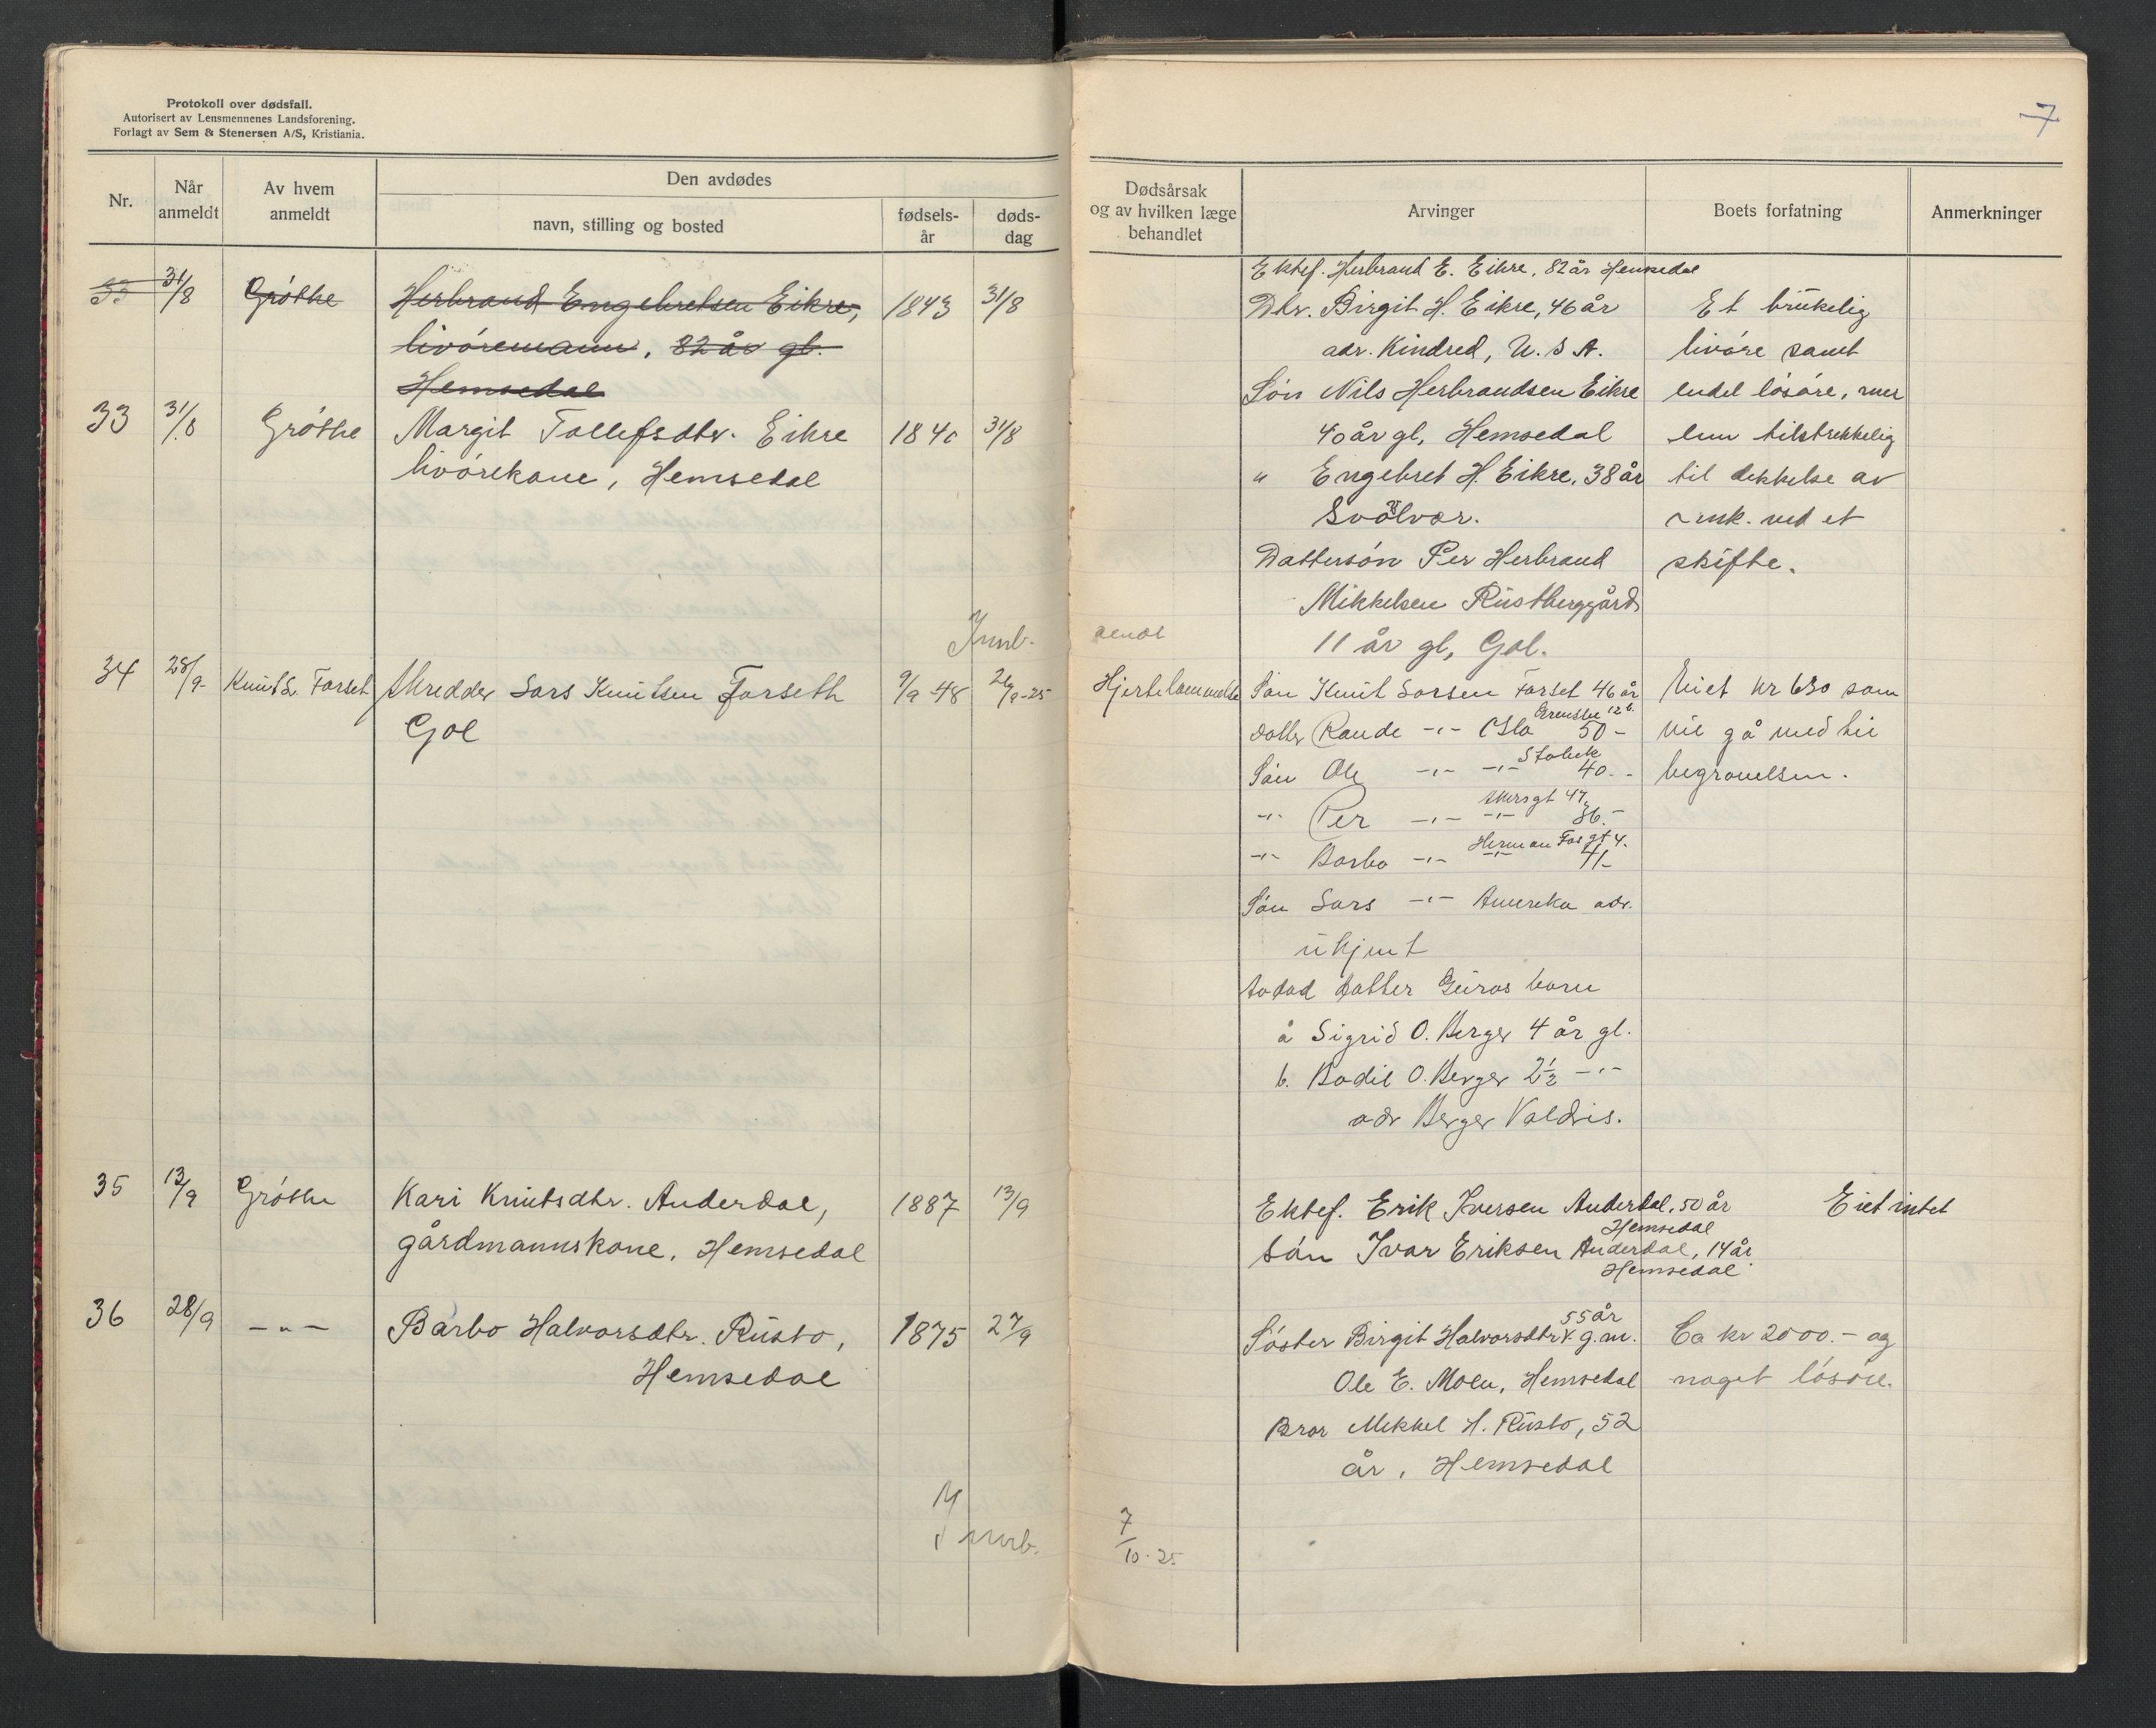 Protokoll over dødsfall.
Autorisert av Lensmennenes Landsforening.
Forlagt av Sem & Stenersen A/S, Kristiania.
7
Nr.
Når anmeldt
Av hvem anmeldt
Den avdødes
navn, stilling og bosted
fødsels-år
døds-dag
Dødsårsak og av hvilken læge behandlet
Arvinger
Boets forfatning
Anmerkninger
33 31/8 Grøthe Herbrand Engebretsen Eikre, 1843 31/8
livøremann, 82 år gl.
Hemsedal
33 31/8 Grøthe Margit Tollefsdtr. Eikre 1840 31/8
livørekone, Hemsedal
Ektef. Herbrand E. Eikre, 82 år Hemsedal
Dtr. Birgit H. Eikre, 46 år
adr. Kindred, U.S.A.
Søn Nils Herbrandsen Eikre
40 år gl, Hemsedal
" Engebret H. Eikre, 38 år
Svolvær.
Dattersøn Per Herbrand
Mikkelsen Rustberggård
11 år gl, Gol.
Et brukelig
livøre samt
endel løsøre, mer
enn tilstrekkelig
til dekkelse av
omk. ved et
skifte.
Innb. sendt
34 28/9 Knut L. Forset Skredder Lars Knutsen Forseth 9/9-48 26/9-25 Hjertelammelse
Gol
Søn Knut Larsen Forset 46 år
datter Rande -"- Oslo 50 -
Søn Ole -"- -"- Stabek 40. -
-"- Per -"- -"- Akersgt 47 36. -
-"- Barbo -"- -"- Herman Fos gt 4. 41 -
Søn Lars -"- Amerika adr.
ukjent
avdød datter Guros barn
a Sigrid O. Berger 4 år gl.
b. Bodil O. Berger 2½ -"-
adr Berger Valdris.
Eiet kr 630 som
vil gå med til
begravelsen.
35 13/9 Grøthe Kari Knutsdtr. Anderdal, 1887 13/9
gårdmannskone, Hemsedal
Ektef. Erik Iversen Anderdal, 50 år
Hemsedal
Søn Ivar Eriksen Anderdal, 14 år
Hemsedal
Eiet intet
36 28/9 -"- Barbo Halvorsdtr. Rusto, 1875 27/9
Hemsedal
55 år
Søster Birgit Halvorsdtr g.m.
Ole E. Moen, Hemsedal
Bror Mikkel H. Rusto, 52
år, Hemsedal
Ca kr 2000.- og
noget løsøre.
Innb.
7/10-25